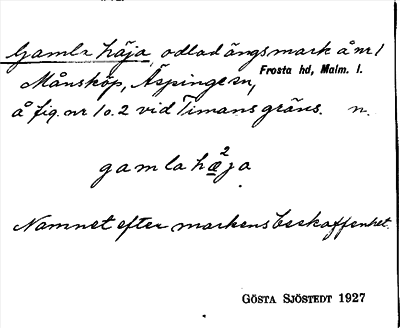 Gamla häja, odlad ängsmark å nr 1
Månsköp, Äspinge sn, Frosta hd, Malm. l.
å fig. nr 1 o. 2 vid Timans gräns. n.
gamla hæ²ja
Namnet efter markens beskaffenhet.
GÖSTA SJÖSTEDT 1927